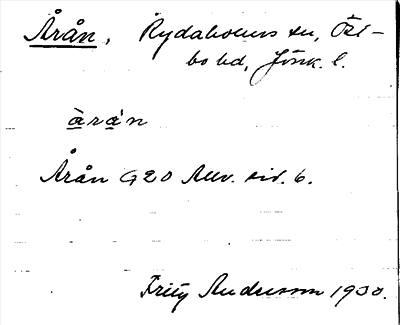 Årån, Rydaholms sn, Öst-
bo hd, Jönk. l.
àrá̀n
Årån G20 Auv. sid. 6.
Fritz Andersson 1930.